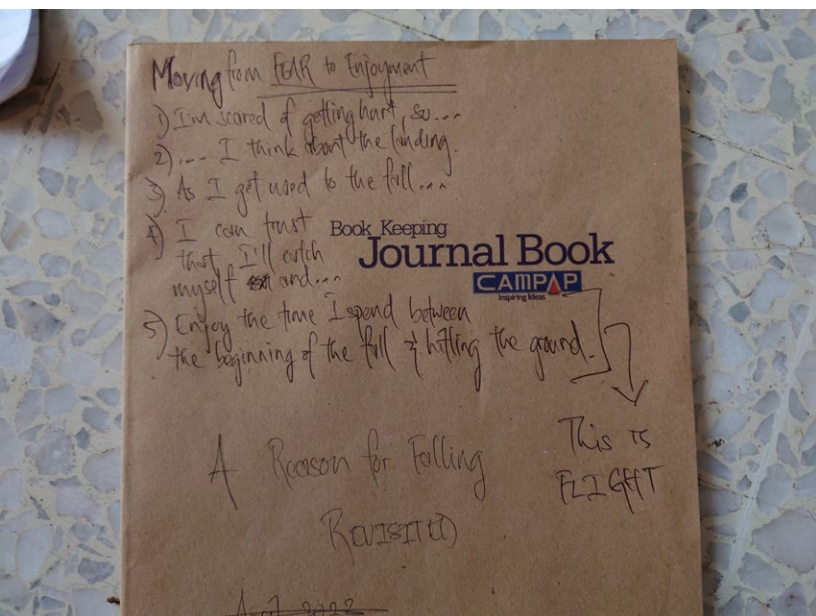 Moving from FEAR to Enjoyment
1) I'm scared of getting hurt, so...
2) ... I think about the landing.
3) As I get used to the fall...
4) I can trust
that I'll catch
myself and...
5) Enjoy the time I spend between
the beginning of the fall & hitting the ground.
This is
FLIGHT
Book Keeping
Journal Book
CAMPAP
Inspiring Ideas
A Reason for Falling
REVISITED
2022